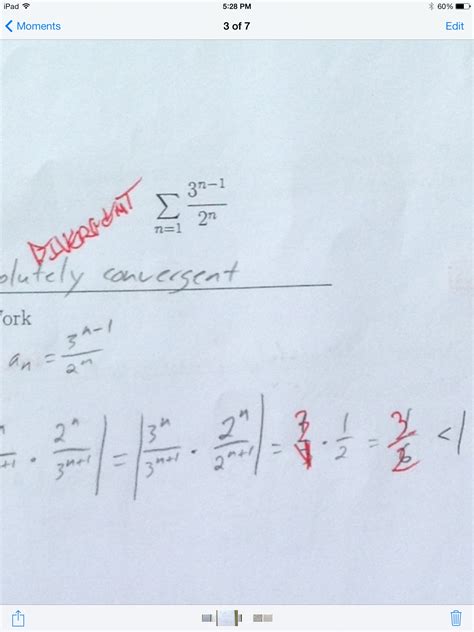 iPad 5:28 PM 60%
Moments 3 of 7 Edit
DIVERGENT
∑ n=1 3^{n-1}/2^n
olutely convergent
ork
a_n = 3^{n-1}/2^n
n+1 · 2^n/3^{n+1}| = |3^n/3^{n+1} · 2^n/2^{n+1}| = 3/1 · 1/2 = 3/2 < 1